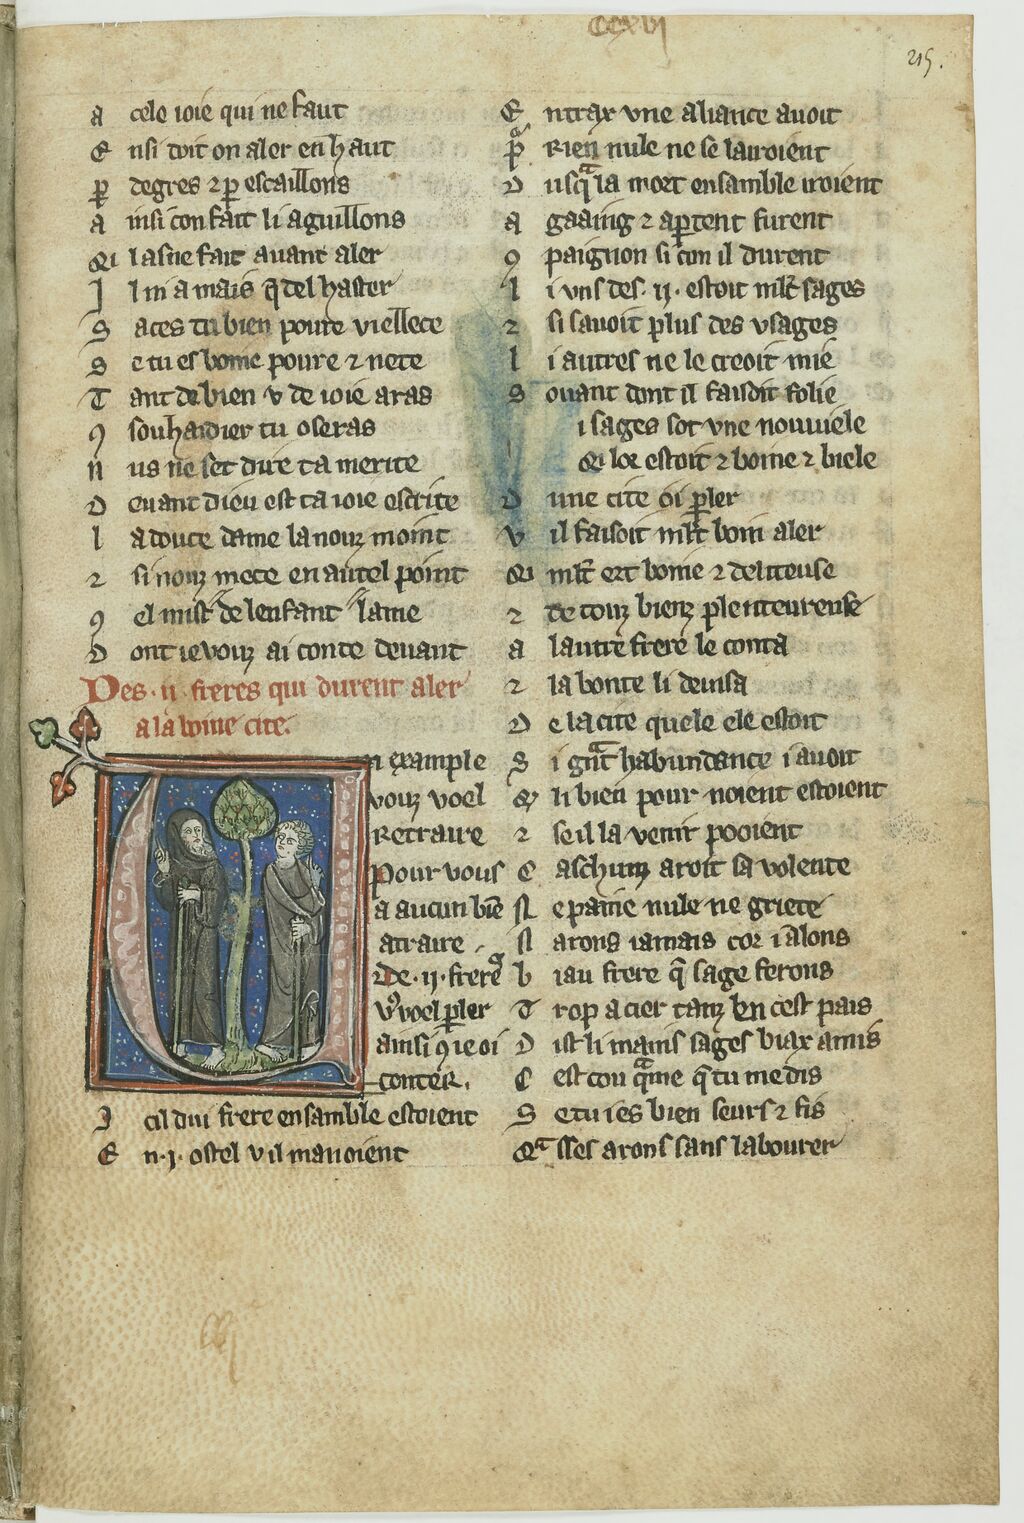 CCXVI
215.
A cele ioie qui ne faut
E nsi doit on aler en haut
P degres ⁊ p escaillons
A insi con fait li aguillons
Qi lasne fait auant aler
I l ni a mais q̃ del haster
S aces tu bien poure viellece
S e tu es boine poure ⁊ nete
T ant de bien v de ioie aras
9 souhaidier tu oseras
N us ne set dire ta merite
D euant dieu est ta ioie escrite
L a douce dame la nouz moint
⁊ si nouz mete en autel point
9 el mist de lenfant lame
D ont ie vouz ai conte deuant
Des .ij. freres qui durent aler
a la boine cite.
Un example
vouz voel
Retraire
Pour vous
a aucun biē
atraire
De .ij. freres
v9 voel pler
ainsi 9 ie oi
conter.
I cil dui frere ensamble estoient
E n .j. ostel v il manoient
E ntrax vne aliance auoit
P Rien nule ne se lairoient
D usqa la mort ensamble iroient
A gaaing ⁊ a ptent furent
9 paignon si con il durent
L i vns des .ij. estoit mlt sages
⁊ si sauoit plus des vsages
L i autres ne le creoit mie
S ouant dont il faisoit folie
i sages sot vne nouuiele
Qi bele estoit ⁊ boine ⁊ biele
D une cite oi pler
V il faisoit mlt boin aler
Qi mlt ert boine ⁊ deliteuse
⁊ de touz bienz plenteureuse
A lautre frere le conta
⁊ la bonte li deuisa
D e la cite quele ele estoit
S i gnt habundance i auoit
Q li bien pour noient estoient
⁊ se il la venir pooient
C aschunz aroit sa volente
N e paine nule ne griete
N arons iamais cor i alons
B iau frere q̃ sage ferons
T rop acier tanz en cest pais
D ist li mains sages biax amis
C est cou q me q̃ tu me dis
S e tu i es bien seurs ⁊ fis
Qa sses arons sans labourer